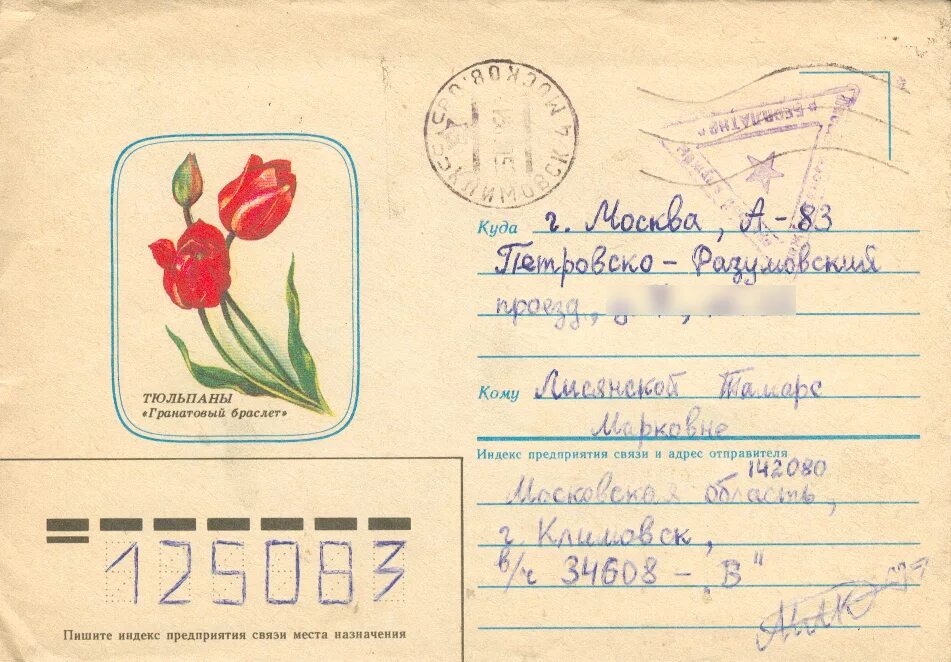 КЛИМОВСК 4 МОСКОВ. ОБ
• БЕСПЛАТНО •
Куда г. Москва, А-83
Петровско - Разумовский
проезд,
Кому Лисянской Тамаре
Марковне
Индекс предприятия связи и адрес отправителя
142080
Московская область,
г. Климовск,
в/ч 34608 - „В"
ТЮЛЬПАНЫ
«Гранатовый браслет»
125083
Пишите индекс предприятия связи места назначения